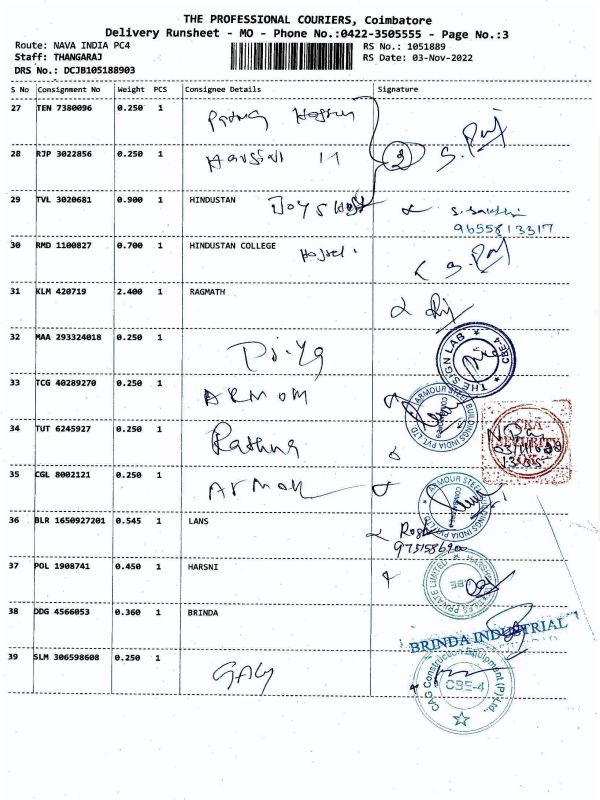 THE PROFESSIONAL COURIERS, Coimbatore
Delivery Runsheet - MO - Phone No.:0422-3505555 - Page No.:3
Route: NAVA INDIA PC4
RS No.: 1051889
Staff: THANGARAJ
RS Date: 03-Nov-2022
DRS No.: DCJB105188903
S No Consignment No Weight PCS Consignee Details Signature
27 TEN 7380096 0.250 1
28 RJP 3022856 0.250 1
29 TVL 3020681 0.900 1 HINDUSTAN Boys
9655813317
30 RMD 1100827 0.700 1 HINDUSTAN COLLEGE Hostel
31 KLM 420719 2.400 1 RAGMATH
32 MAA 293324018 0.250 1 Priya
THE SIGN LAB CBE4
33 TCG 40289270 0.250 1
ARMOUR STEEL BUILDINGS INDIA PVT LTD
34 TUT 6245927 0.250 1 Rathna
35 CGL 8002121 0.250 1
ARMOUR STEEL BUILDINGS INDIA PVT LTD
36 BLR 1650927201 0.545 1 LANS
37 POL 1908741 0.450 1 HARSNI
PRIVATE LIMITED
38 DDG 4566053 0.360 1 BRINDA
BRINDA INDUSTRIAL
39 SLM 306598608 0.250 1
CAG Construction Equipment (P) Ltd.,
CBE-4